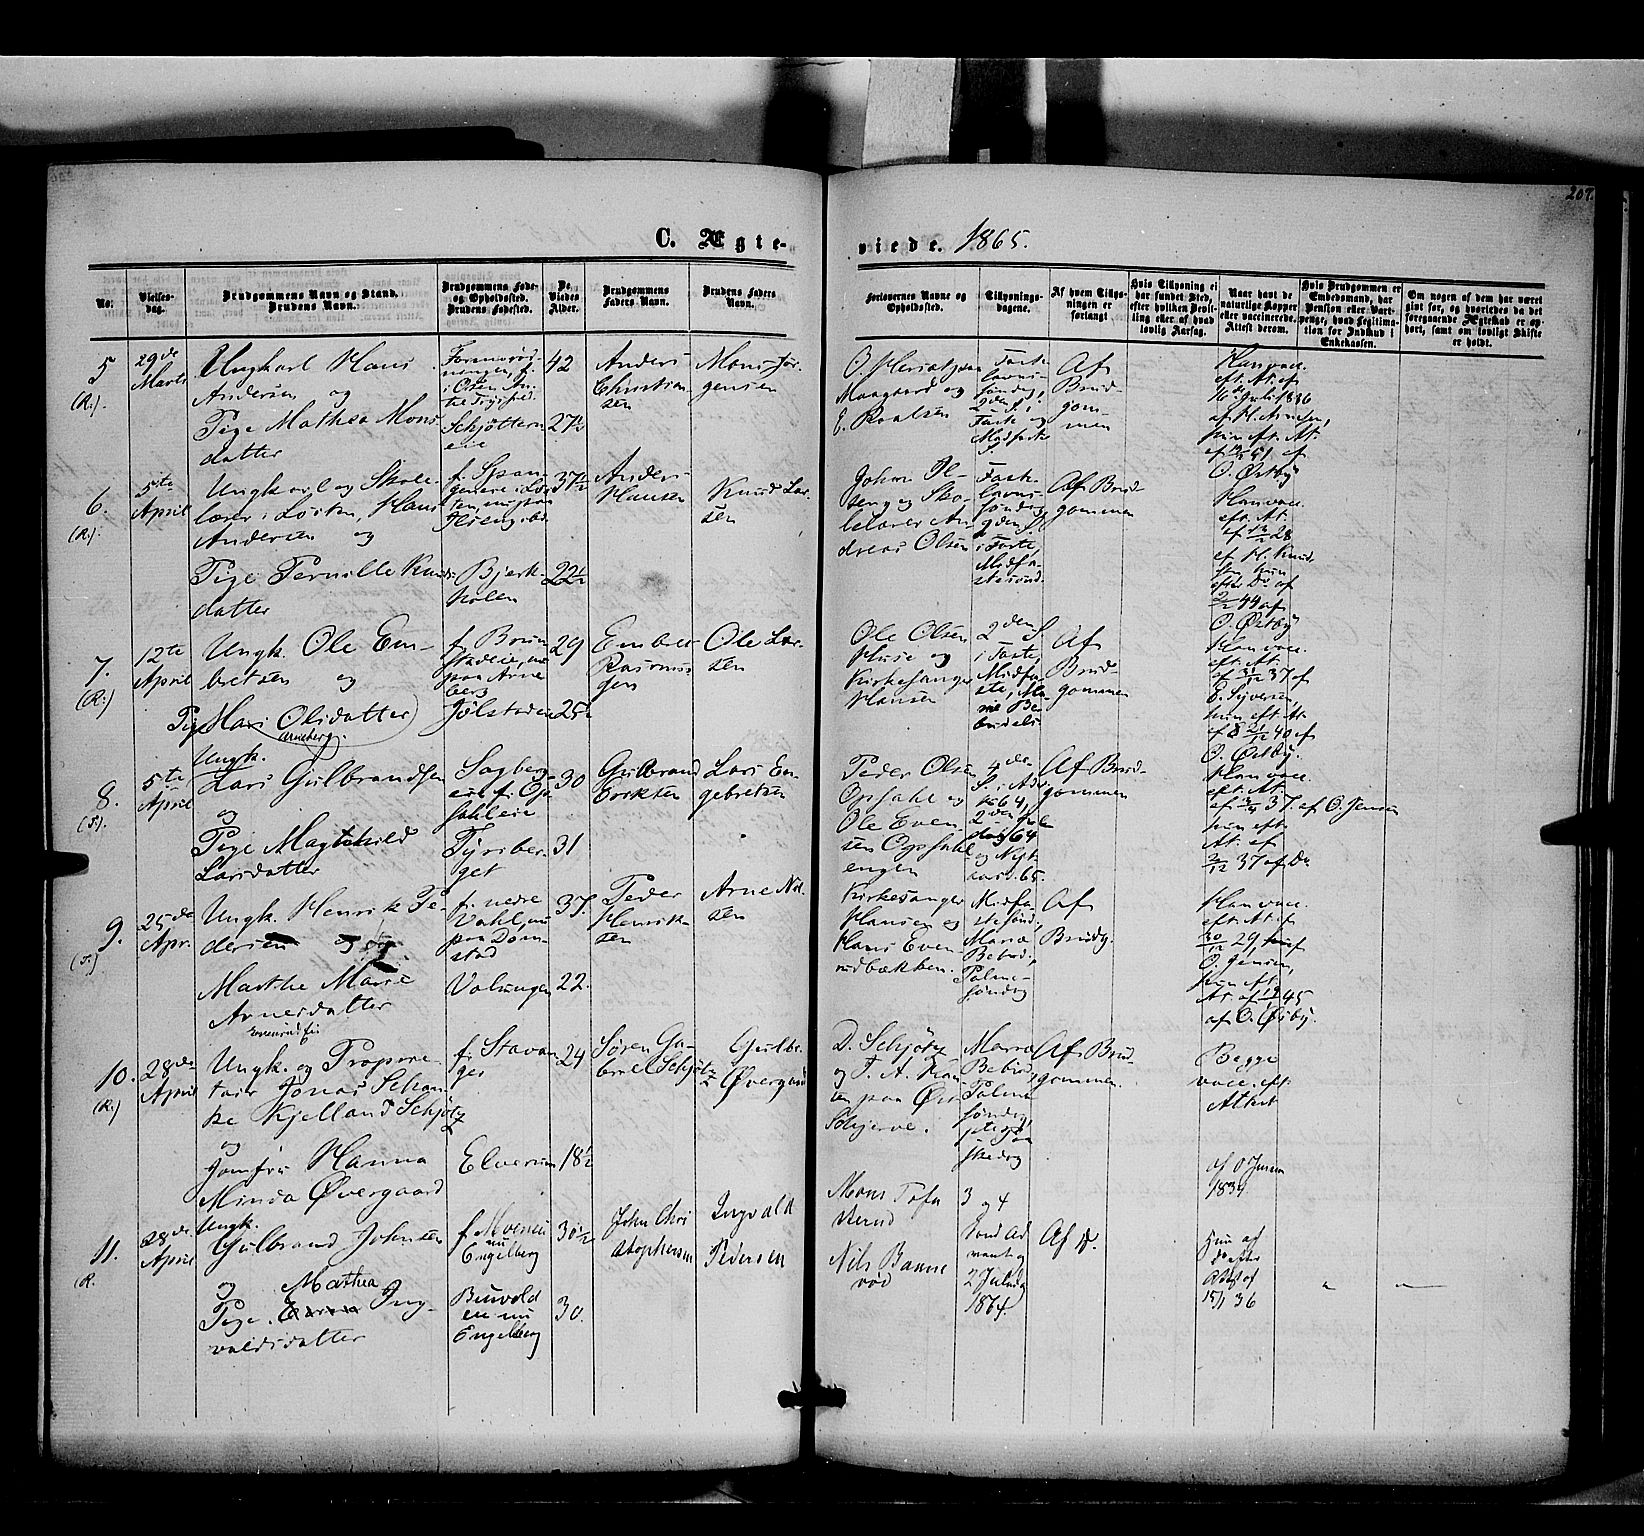 207.
C. Ægte-
viede. 1865.
No.
Vielses-
dag.
Brudgommens Navn og Stand.
Brudens Navn.
Brudgommens Føde-
og Opholdssted.
Brudens Fødested.
De
Viedes
Alder.
Brudgommens
Faders Navn.
Brudens Faders
Navn.
Forlovernes Navne og
Opholdssted.
Tillysnings-
dagene.
Af hvem Tillys-
ningen er
forlangt
Hvis Tillysning ei
har fundet Sted,
efter hvilken Bevil-
ling eller af hvad
lovlig Aarsag.
Naar havt de
naturlige Kopper
eller vaccinerede.
Attest derom.
Hvis Brudgommen er
Embedsmand, har
Pension eller Vart-
penge, hvad Legitima-
tion for Indskud i
Enkekassen.
Om nogen af dem har været
gift før, og hvorledes da det
foregaaende Ægteskab er op-
hørt, samt om lovligt Skifte
er holdt.
5
(R.)
29de
Marts
Ungkarl Hans
Andersen og
Pige Mathea Mons-
datter
i Osen An-
Schjøttern
eie
42
27½
Anders
Christian-
sen
Mons Jør-
gensen
Maagaard og
E. Paalsen
Faste-
lavns-
søndag,
2den S. i
Faste og
Midfaste
S.
Af
Brud-
gom-
men
Han vacc.
eft. At. af
16de Juli 1836
af H. Arnesen,
hun eft. At.
af
O. Østby
6.
(R.)
5te
April
Ungkarl og Skole-
lærer i Løiten, Hans
Andersen og
Pige Pernille Knuds-
datter
Bjerke-
holen
37½
22½
Anders
Hansen
Knud Lar-
sen
Johan Il-
seng og Sko-
lelærer An-
dreas Olsen
Faste-
lavns-
søndag
2den S.
i Faste,
Midfa-
stesønd.
Af Brud-
gommen
Han vacc.
eft. At.
af H. Knud-
sen hun
efter Do af
2/2 44 af
O. Østby
7.
(R.)
12te
April
Ungk. Ole Em-
bretsen og
Pige Mari Olsdatter
Arneberg.
f. Brun-
stadeie, nu
paa Arne-
berg
Jølstadeie
29
25½
Embret
Rasmus-
sen
Ole Lar-
sen
Ole Olsen
Huse og
Kirkesanger
Hansen
2den S.
i Faste,
Midfa-
ste, Ma-
riæ Be-
budels.
Af
Brud-
gommen
Han vacc.
eft. At.
af 31/12 37 af
E. Syversen
hun eft. At.
af 21/12 40 af
O. Østby.
8.
(S.)
5te
April
Ungk.
Lars Gulbrandsen
og
Pige Magthild
Larsdatter
Sagberg-
eie f. Op-
sahleie
Tyriber-
get
30
31
Gulbrand
Eriksen
Lars En-
gebretsen
Peder Olsen
Opsahl og
Ole Even-
sen Opsahl-
engen
4de
S. i Adv.
1864,
2den Jule-
dag 64
og Nyt-
aar 65.
Af Brud-
gommen
Han vacc.
eft. At.
af 37. af O. Jensen
hun eft.
At. af
2/12 37 af Do
9.
(S.)
25de
Apr.
Ungk. Henrik Pe-
dersen og
Marthe Marie
Arnesdatter
f. nedre
Vahl, nu
paa Dom-
stad
Valungen
37.
22.
Peder
Henrik-
sen
Arne Nil-
sen
Kirkesanger
Hansen og
Hans Even-
rudbækken.
Midfa-
stesønd.,
Mariæ
Bebud.,
Palme-
søndag
Af
Brudg.
Han vacc.
eft. At. af
30/12 29, af
O. Jensen,
hun eft.
At. af 45
af O. Østby.
10.
(R.)
28de
April
Ungk. og Propriæ-
tair Jonas Schan-
ke Kjelland Schjøtz
og
Jomfru Hanna
Minda Øvergaard
f. Stavan-
ger
Elverum
24
18½
Søren Ga-
briel Schjøtz
Gulbr.
Øvergaard
D. Schjøtz
og T. A. Kan-
ten paa Øvr.
Schjerve.
Maria
Bebud.,
Palme-
søndag,
Paa-
skedag
Af Brud-
gommen.
Begge
vacc. eft.
Attest
11.
(R.
28de
April
Ungk.
Gulbrand Johnsen
og Mathea
Pige Ing-
valdsdatter
f. Moeneie
nu
Engelberg
Busvold
eie nu
Engelberg
30½
30.
John Chri-
stophersen
Ingvald
Pedersen
Mons Tofa-
sterud
Nils Banne-
rød
3 og 4
Sønd Ad-
vent og
2 Juledag
1864.
Af B.
af O Jensen
1834
Hun af
Do efter
Attest af
15/1 36
" "